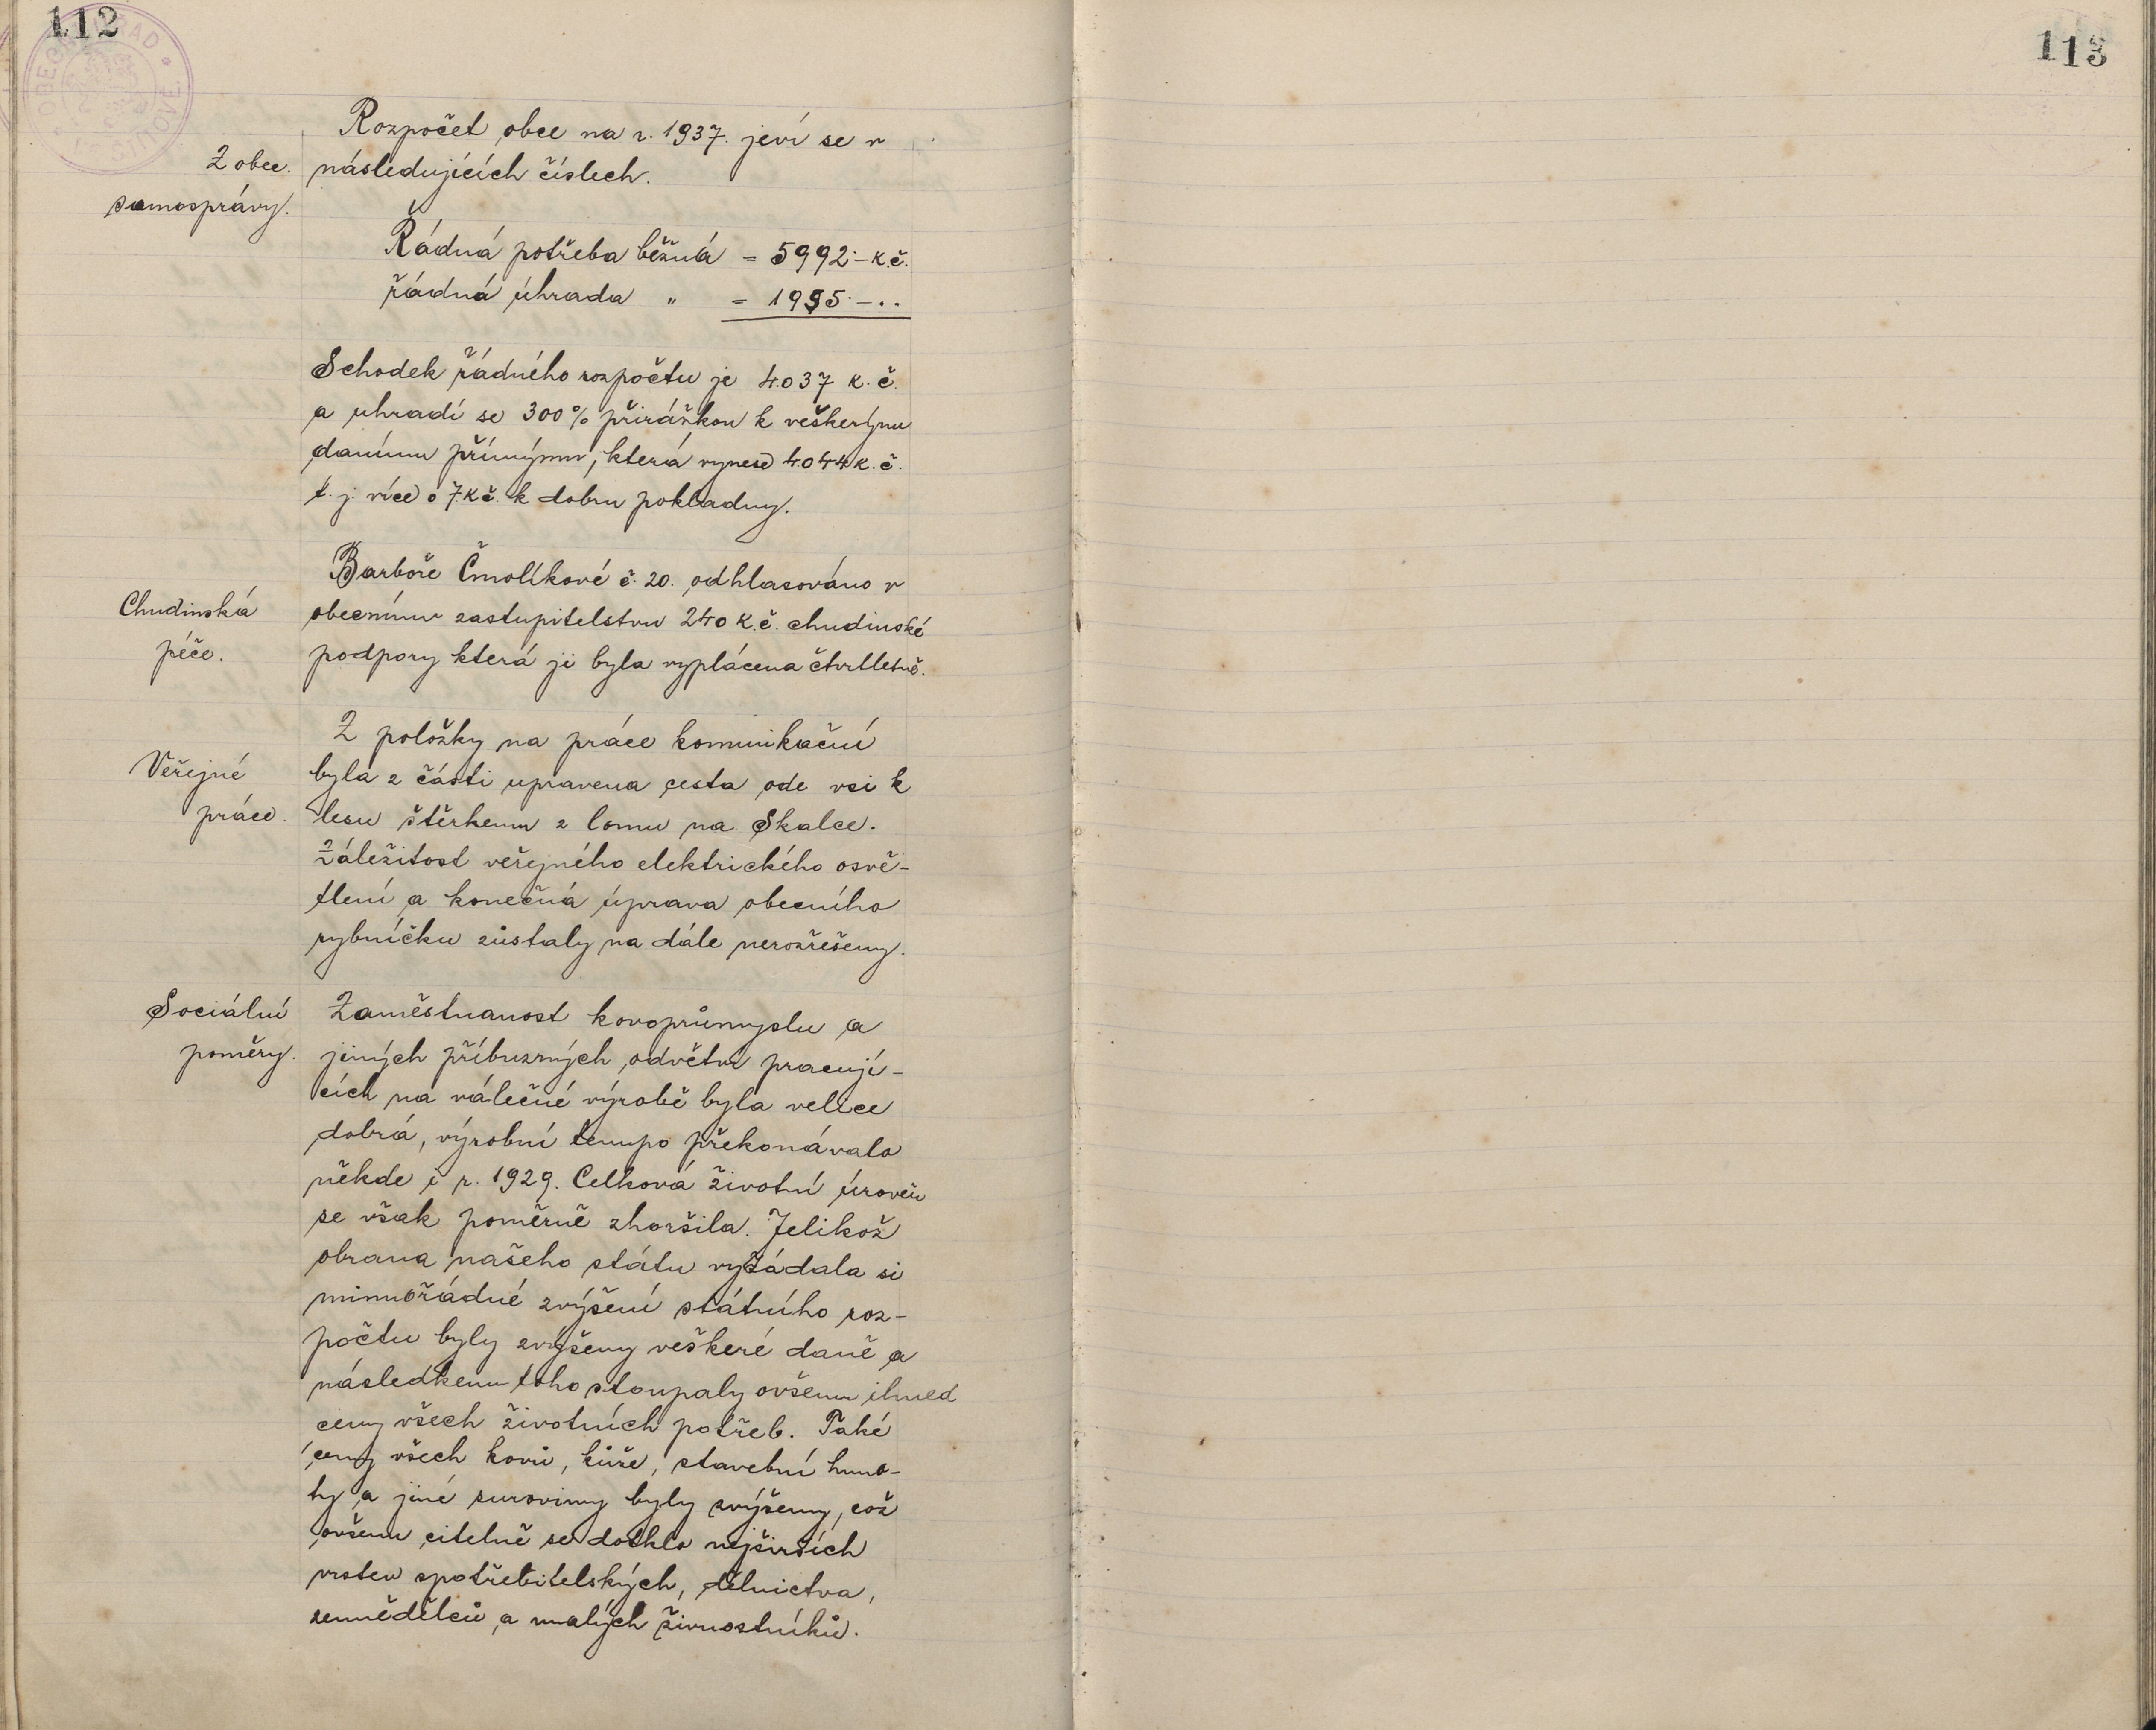 112
Rozpočet obce na r. 1937. jeví se v
Z obec. následujících číslech.
samosprávy.
Řádná potřeba běžná = 5992·– K.č.
řádná úhrada " = 1955·– ..
Schodek řádného rozpočtu je 4.037 K.č.
a uhradí se 300% přirážkou k veškerým
daním přímým, která vynese 4.044 K.č.
t. j. více o 7 Kč. k dobru pokladny.
Barboře Čmolíkové č. 20. odhlasováno v
Chudinská obecním zastupitelstvu 240 K.č. chudinské
péče. podpory která ji byla vyplácena čtvrtletně.
Z položky na práce komunikační
Veřejné byla z části upravena cesta ode vsi k
práce. lesu štěrkem z lomu na Skalce.
Záležitost veřejného elektrického osvě-
tlení a konečná úprava obecního
rybníčku zůstaly na dále nerozřešeny.
Sociální Zaměstnanost kovoprůmyslu a
poměry. jiných příbuzných odvětví pracují-
cích na válečné výrobě byla velice
dobrá, výrobní tempo překonávalo
někde i r. 1929. Celková životní úroveň
se však poměrně zhoršila. Jelikož
obrana našeho státu vyžádala si
mimořádné zvýšení státního roz-
počtu byly zvýšeny veškeré daně a
následkem toho stoupaly ovšem ihned
ceny všech životních potřeb. Také
ceny všech kovů, kůže, stavební hmo-
ty a jiné suroviny byly zvýšeny, což
ovšem citelně se dotklo nejširších
vrstev spotřebitelských, dělnictva,
zemědělců a malých živnostníků.
113